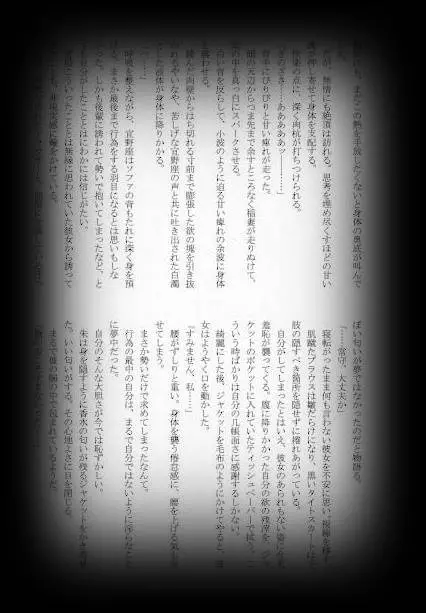 も、まだこの熱を手放したくないと身体の奥底が叫んで
だが、無情にも絶頂は訪れる。思考を埋め尽くすほどの甘い
が押し寄せて身体を支配する。
後の点に、深く肉杭が打ちつけられる。
ぎのさ……ああああぁ――……っ」
背中にびりびりと甘い痺れが走った。
頭の天辺からつま先まで余すところなく稲妻が走りぬけて、
の中を真っ白にスパークさせる。
白い首を反らして、小波のように迫る甘い痺れの余波に身体
を震わせる。
緩んだ肉壁からはち切れる寸前まで膨張した欲の塊を引き抜
くやいなや、苦しげな宜野座の声と共に吐き出された白濁
液体が身体に降りかかる。
呼吸を整えながら、宜野座はソファの背もたれに深く身を預
まさか最後まで行為をする羽目になるとは思いもしな
った。しかも後輩に誘われて勢いで抱いてしまったなど、と
自分がしたこととはにわかには信じがたい。
ういったこととは無縁に思われていた彼女から誘って
ぽい匂いが夢ではなかったのだと物語る。
『……常守、大丈夫か』
寝転がったまま何も言わない彼女を不安に思い、視線を移す
肌蹴たブラウスは皺だらけになり、黒いタイトスカートは
肢の隠すべき箇所を隠せずに捲れあがっている。
自分がしてしまったとはいえ、彼女のあられもない姿に
羞恥が襲ってくる。腹に降りかかった自分の欲の残滓を、ジャ
ケットのポケットに入れていたティッシュペーパーで拭う。こ
ういう時ばかりは自分の几帳面さに感謝するしかない。
綺麗にした後、ジャケットを毛布のようにかけてやると、
女はようやく口を動かした。
『すみません、私……』
腰がずしりと重い。身体を襲う倦怠感に、腰を上げる気
せてしまう。
まさか勢いだけで求めてしまったなんて。
行為の最中の自分は、まるで自分ではないように淫らなこと
に夢中だった。
自分のそんな大胆さが今では恥ずかしい。
朱は身を隠すように香水の匂いが残るジャケットをかき寄せ
た。いい匂いがする。その心地よさに目を閉じる。
まるで彼の腕の中で包まれているようだ。